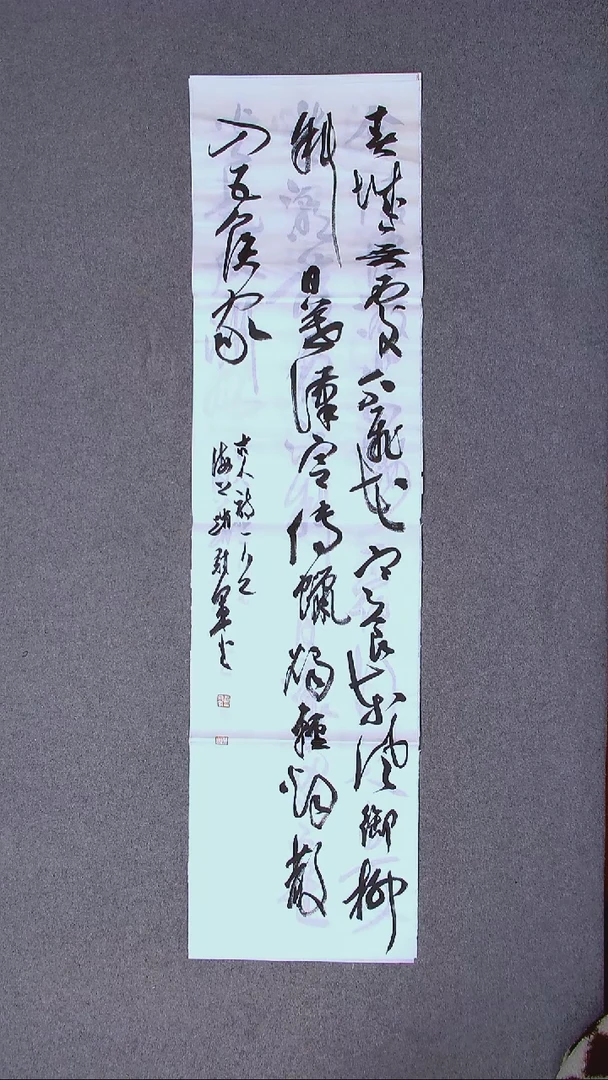 春城無處不飛花寒食東風御柳
斜日暮漢宮傳蠟燭輕烟散
入五侯家
古人詩一首
海上趙